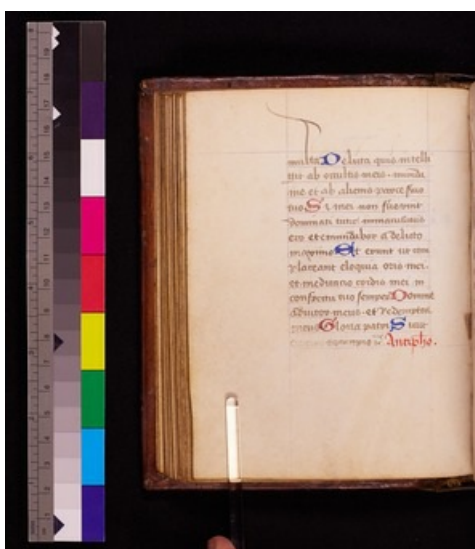 multa Delicta quis intelli
git ab occultis meis munda
me et ab alienis parce suo
tuo Si mei non fuerint
dominati tunc immaculatus
ero et emundabor a delicto
maximo Et erunt ut com
placeant eloquia oris mei
et meditatio cordis mei in
conspectu tuo semper Domine
adiutor meus et redemptor
meus Gloria patri Sicut
Antipho.